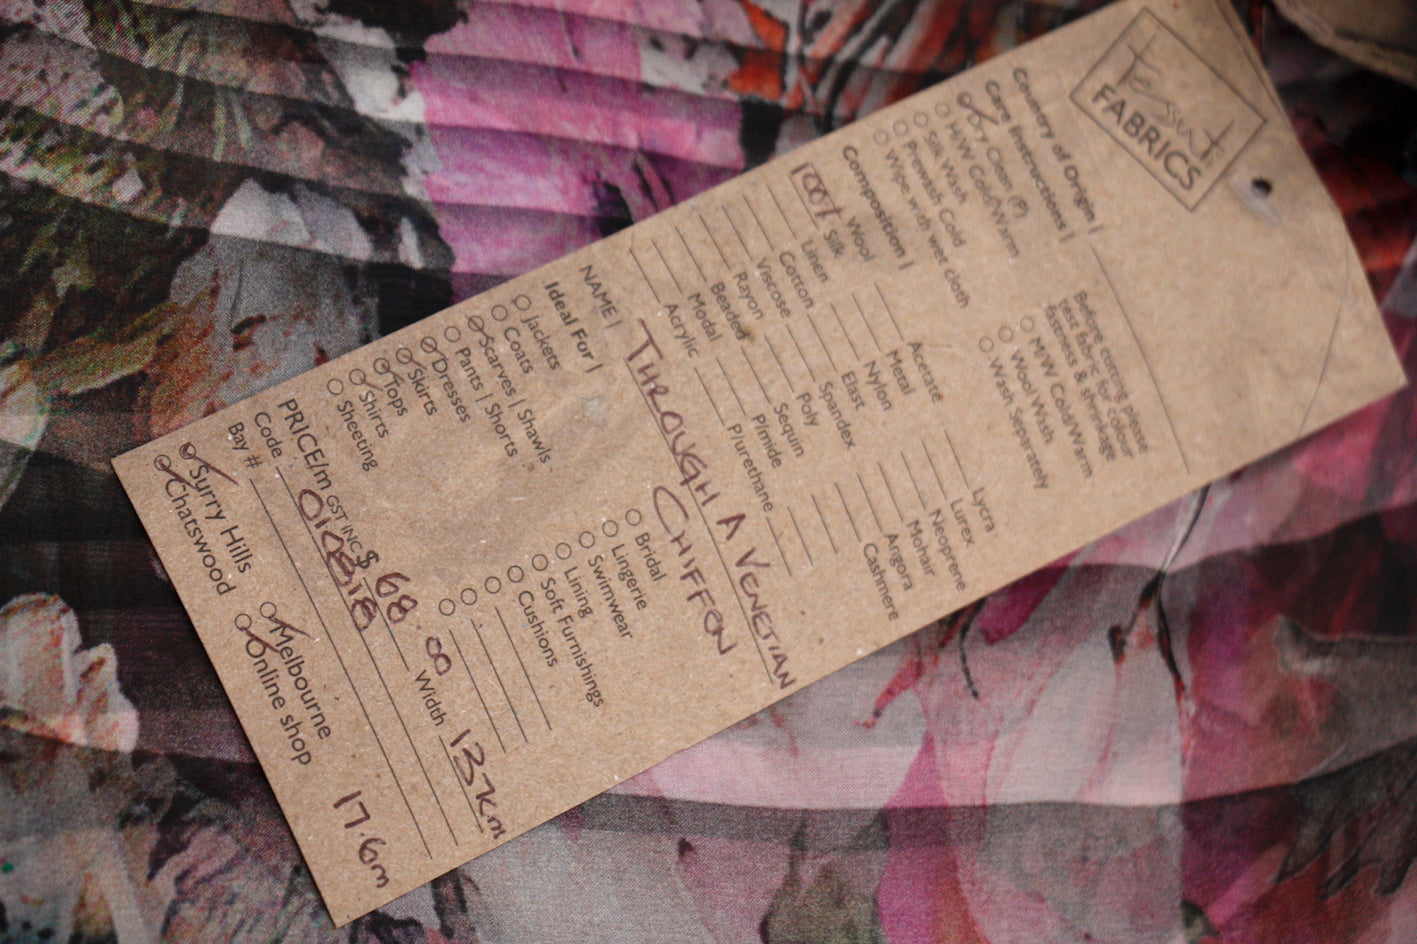 Tessuti
FABRICS
Country of Origin |
Care Instructions |
Dry Clean (P)
H/W Cold/Warm
Silk Wash
Prewash Cold
Wipe with wet cloth
Before cutting please
test fabric for colour
fastness & shrinkage
M/W Cold/Warm
Wool Wash
Wash Separately
Composition |
Wool
100% Silk
Linen
Cotton
Viscose
Rayon
Beaded
Modal
Acrylic
Acetate
Metal
Nylon
Elast
Spandex
Poly
Sequin
P/mide
P/urethane
Lycra
Lurex
Neoprene
Mohair
Angora
Cashmere
NAME | THROUGH A VENETIAN
CHIFFON
Ideal For |
Jackets
Coats
Scarves | Shawls
Pants | Shorts
Dresses
Skirts
Tops
Shirts
Sheeting
Bridal
Lingerie
Swimwear
Lining
Soft Furnishings
Cushions
PRICE/m GST INC $ 68.00 Width
Code
Bay #
Surry Hills
Chatswood
Melbourne
Online shop
17.6m